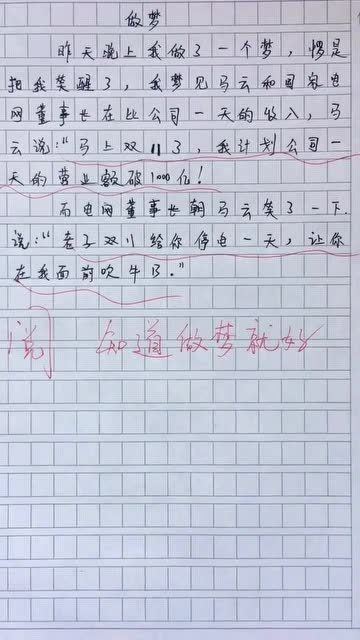 做梦
昨天晚上我做了一个梦，愣是
把我笑醒了，我梦见马云和国家电
网董事长在比公司一天的收入，马
云说："马上双11了，我计划公司一
天的营业额破1000亿！
而电网董事长朝马云笑了一下.
说："老子双11给你停电一天，让你
在我面前吹牛B."
阅 知道做梦就好